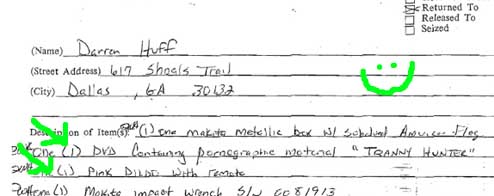 Returned To
Released To
Seized
(Name) Darren Huff
(Street Address) 617 Shoals Trail
(City) Dallas, GA 30132
Description of Item(s): (1) one makita metallic box w/ American Flag
One (1) DVD Containing pornographic material "TRANNY HUNTER"
(1) PINK DILDO with remote
(1) Makita impact wrench S/N 0081913